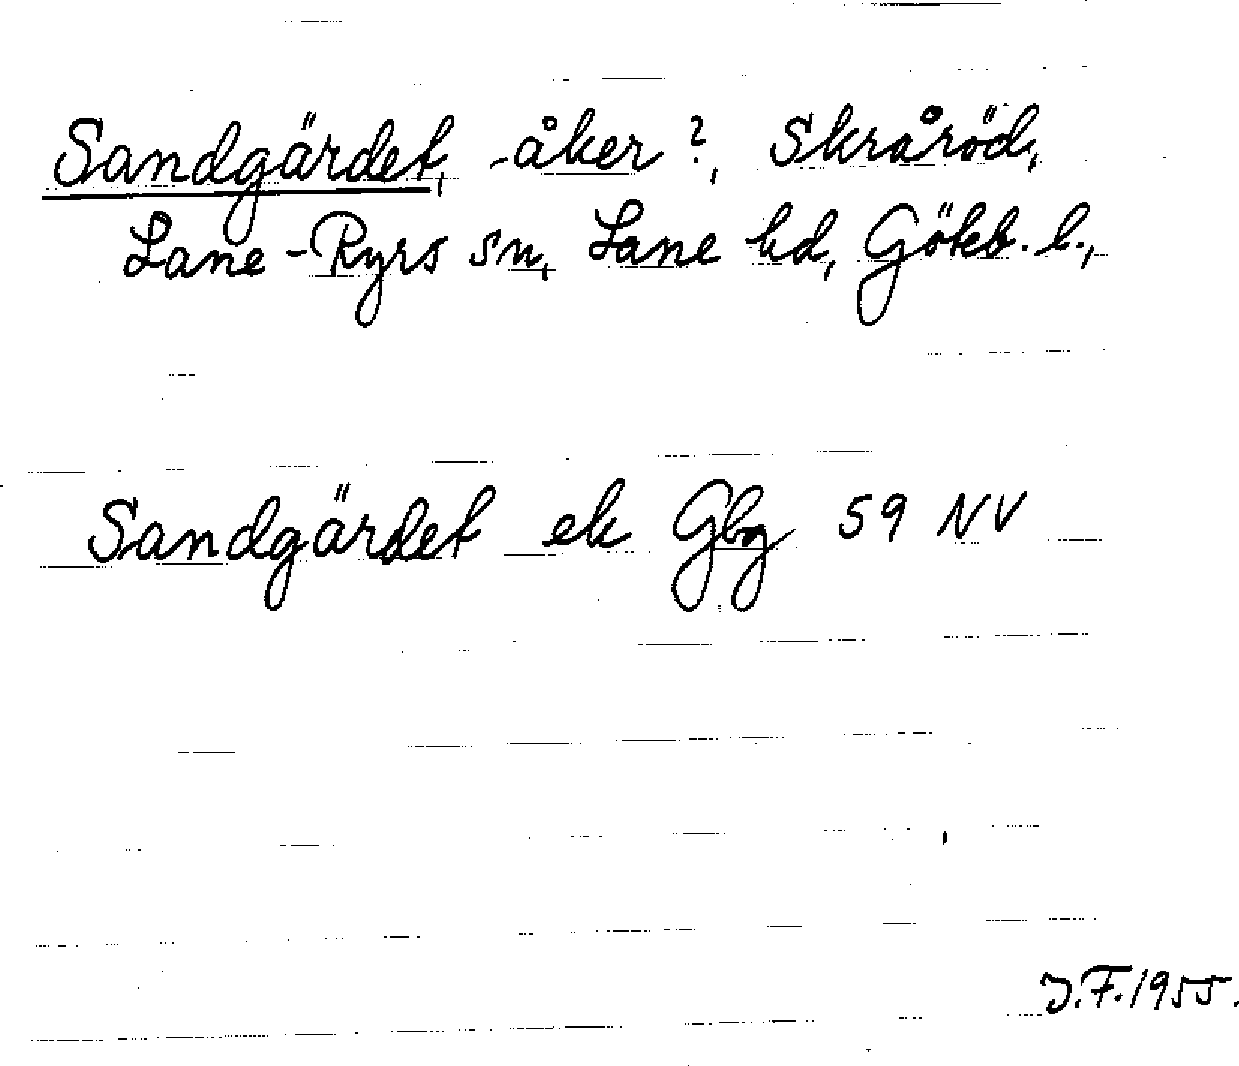 Sandgärdet, -åker?, Skråröd,
Lane-Ryrs sn, Lane hd, Göteb. l.,
Sandgärdet ek Gbg 59 NV
J.F. 1955.